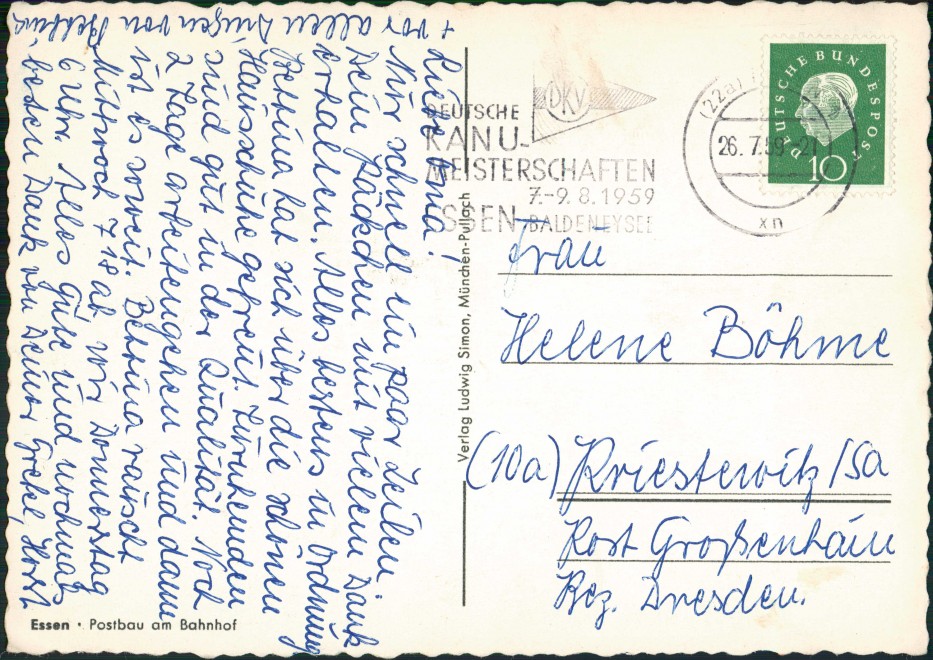 Liebe Oma!
Nur schnell ein paar Zeilen.
Dein Päckchen mit vielem Dank
erhalten. Alles bestens in Ordnung
Bettina hat sich über die schönen
Hausschuhe gefreut.
und gut in der Qualität. Noch
2 Tage arbeitengehen und dann
ist es soweit. Bettina rauscht
Mittwoch 718 ab wir Donnerstag
6 Uhr. Alles Gute und nochmals
besten Dank von Deiner Grete, Horst
+ vor allen Dingen von Bettina.
Essen · Postbau am Bahnhof
Verlag Ludwig Simon, München-Pullach
DKV
DEUTSCHE
KANU-
MEISTERSCHAFTEN
7.-9. 8. 1959
ESSEN-BALDENEYSEE
(22a)
26. 7. 59 -21
xn
DEUTSCHE BUNDESPOST
10
Frau
Helene Böhme
(10a) Kriesterwitz/Sa
Post Großenhain
Bez. Dresden.